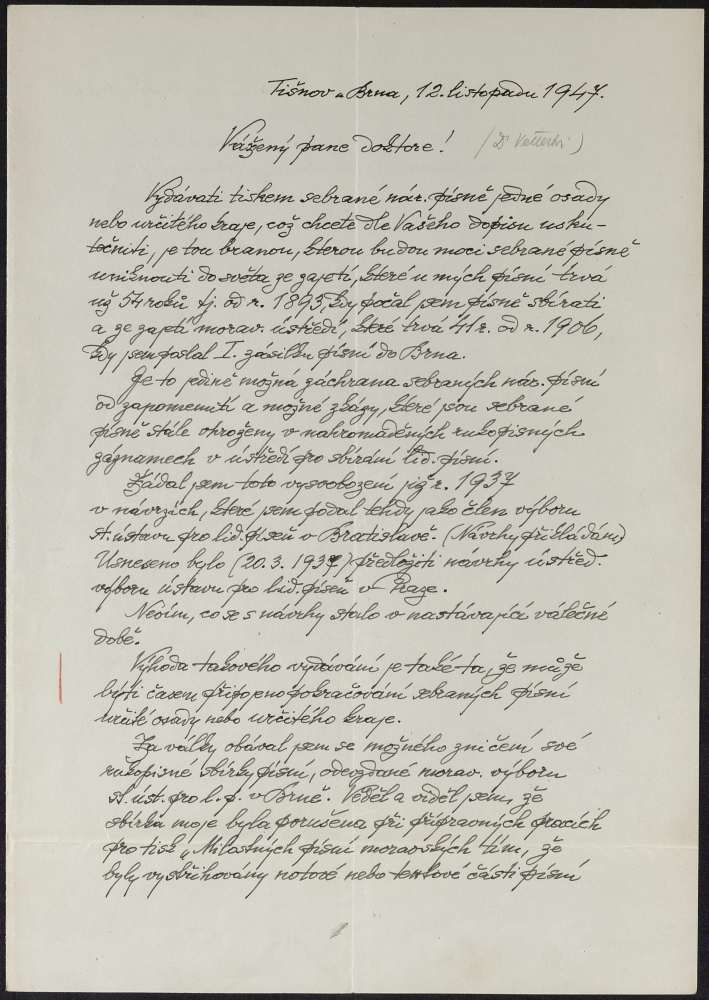 Tišnov u Brna, 12. listopadu 1947.
Vážený pane doktore!
Vydávati tiskem sebrané nár. písně jedné osady
nebo určitého kraje, což chcete dle Vašeho dopisu usku-
tečniti, je tou branou, kterou budou moci sebrané písně
uniknouti do světa ze zajetí, které u mých písní trvá
už 54 roků tj. od r. 1893, kdy počal jsem písně sbírati
a ze zajetí morav. ústředí, které trvá 41 r. od r. 1906,
kdy jsem poslal I. zásilku písní do Brna.
Je to jedině možná záchrana sebraných nár. písní
od zapomenutí a možné zkázy, které jsou sebrané
písně stále ohroženy v nahromaděných rukopisných
záznamech v ústředí pro sbírání lid. písní.
Žádal jsem toto vysvobození již r. 1937
v návrzích, které jsem podal tehdy jako člen výboru
st. ústavu pro lid. píseň v Bratislavě. (Návrhy přikládám)
Usneseno bylo (20.3. 1937) předložiti návrhy ústřed.
výboru ústavu pro lid. píseň v Praze.
Nevím, co se s návrhy stalo v nastávající válečné
době.
Výhoda takového vydávání je také ta, že může
býti časem připojeno pokračování sebraných písní
určité osady nebo určitého kraje.
Za války obával jsem se možného zničení své
rukopisné sbírky písní, odevzdané morav. výboru
st. úst. pro l. p. v Brně. Věděl a viděl jsem, že
sbírka moje byla porušena při přípravných pracích
pro tisk „Milostných písní moravských tím, že
byly vystřihovány notové nebo textové části písní